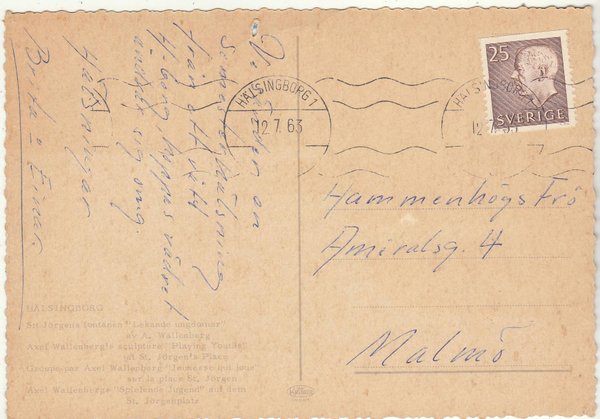 Vi sänder en
sommarhälsning
från ett vått
H-borg, hoppas vädret
ändrar sig.
Hälsningar
Brita - Einar
25
SVERIGE
HÄLSINGBORG 1
12.7.63
Hammenhögs Frö
Amiralsg. 4
Malmö
HÄLSINGBORG
S:t Jörgens fontänen "Lekande ungdomar"
av A. Wallenberg
Axel Wallenberg's sculpture "Playing Youths"
at St. Jörgen's Place
Groupe par Axel Wallenberg "Jeunesse qui joue"
sur la place St. Jörgen
Axel Wallenbergs "Spielende Jugend" auf dem
St. Jörgenplatz